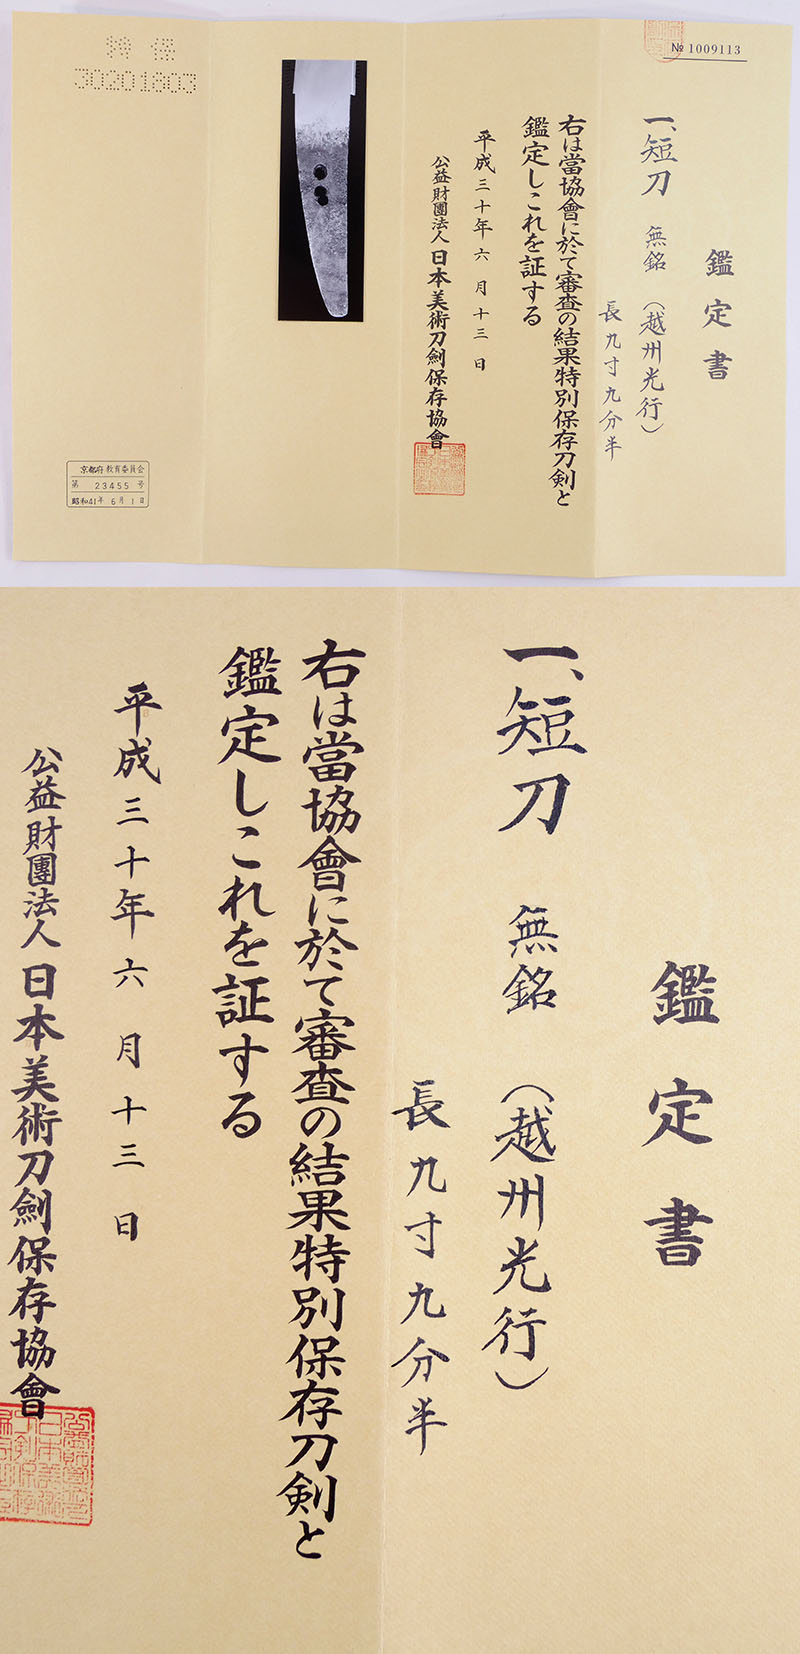 № 1009113
鑑定書
一、短刀 無銘 (越州光行)
長九寸九分半
右は當協會に於て審査の結果特別保存刀剣と
鑑定しこれを証する
平成三十年六月十三日
公益財團法人日本美術刀劍保存協會
特保
30201803
京都府教育委員会
第 23455 号
昭和41年 6月 1日
鑑定書
一、短刀 無銘 (越州光行)
長九寸九分半
右は當協會に於て審査の結果特別保存刀剣と
鑑定しこれを証する
平成三十年六月十三日
公益財團法人日本美術刀劍保存協會